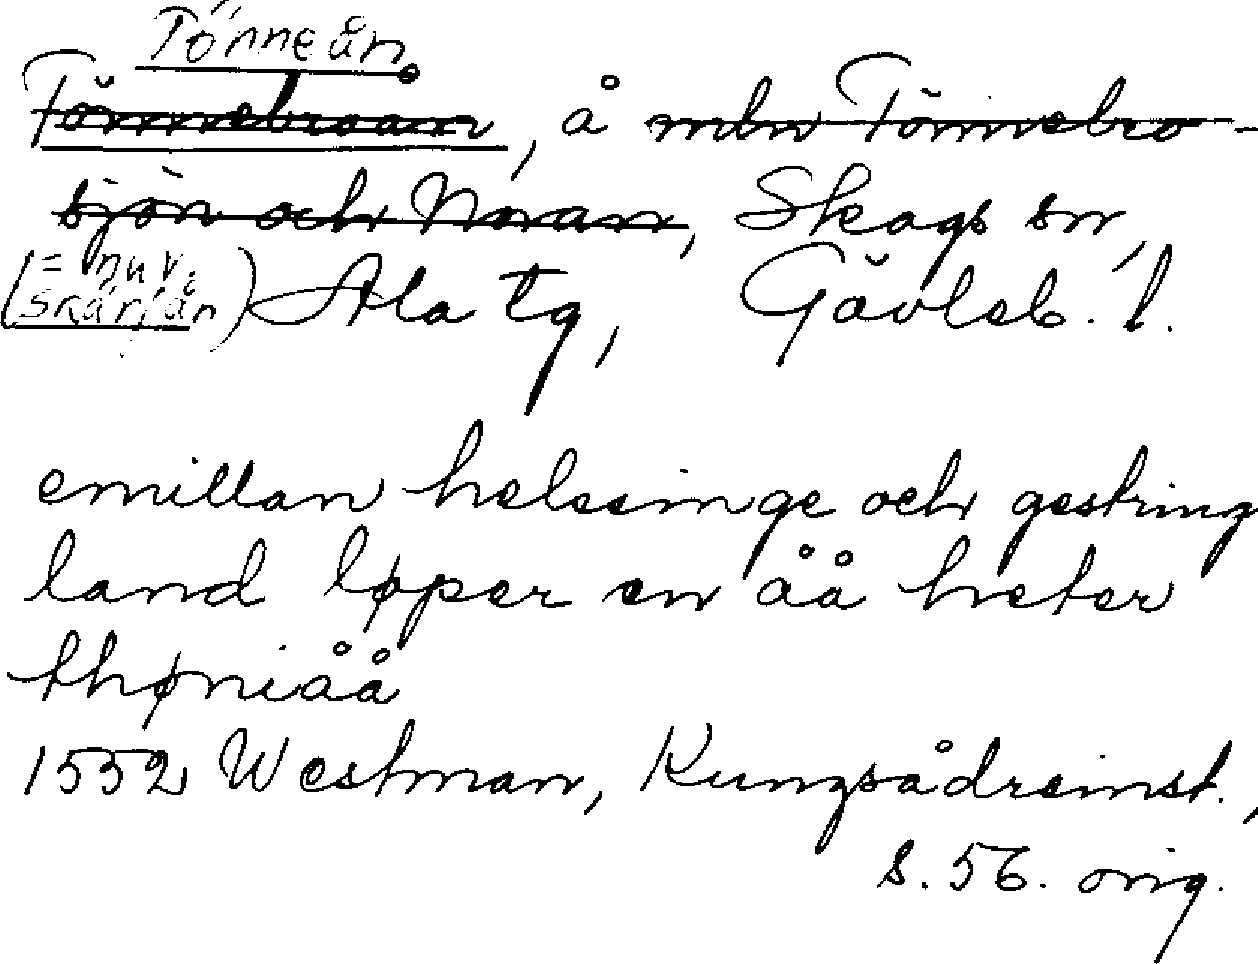 Tönneån
Tönnebroån, å mln Tönnebro-
sjön och Noran, Skogs sn,
(= nuv. Skärjån) Ala tg, Gävleb. l.
emillan helsinge och gestring
land løper en åå heter
thøniåå
1552 Westman, Kungsådreinst.,
s. 56. orig.